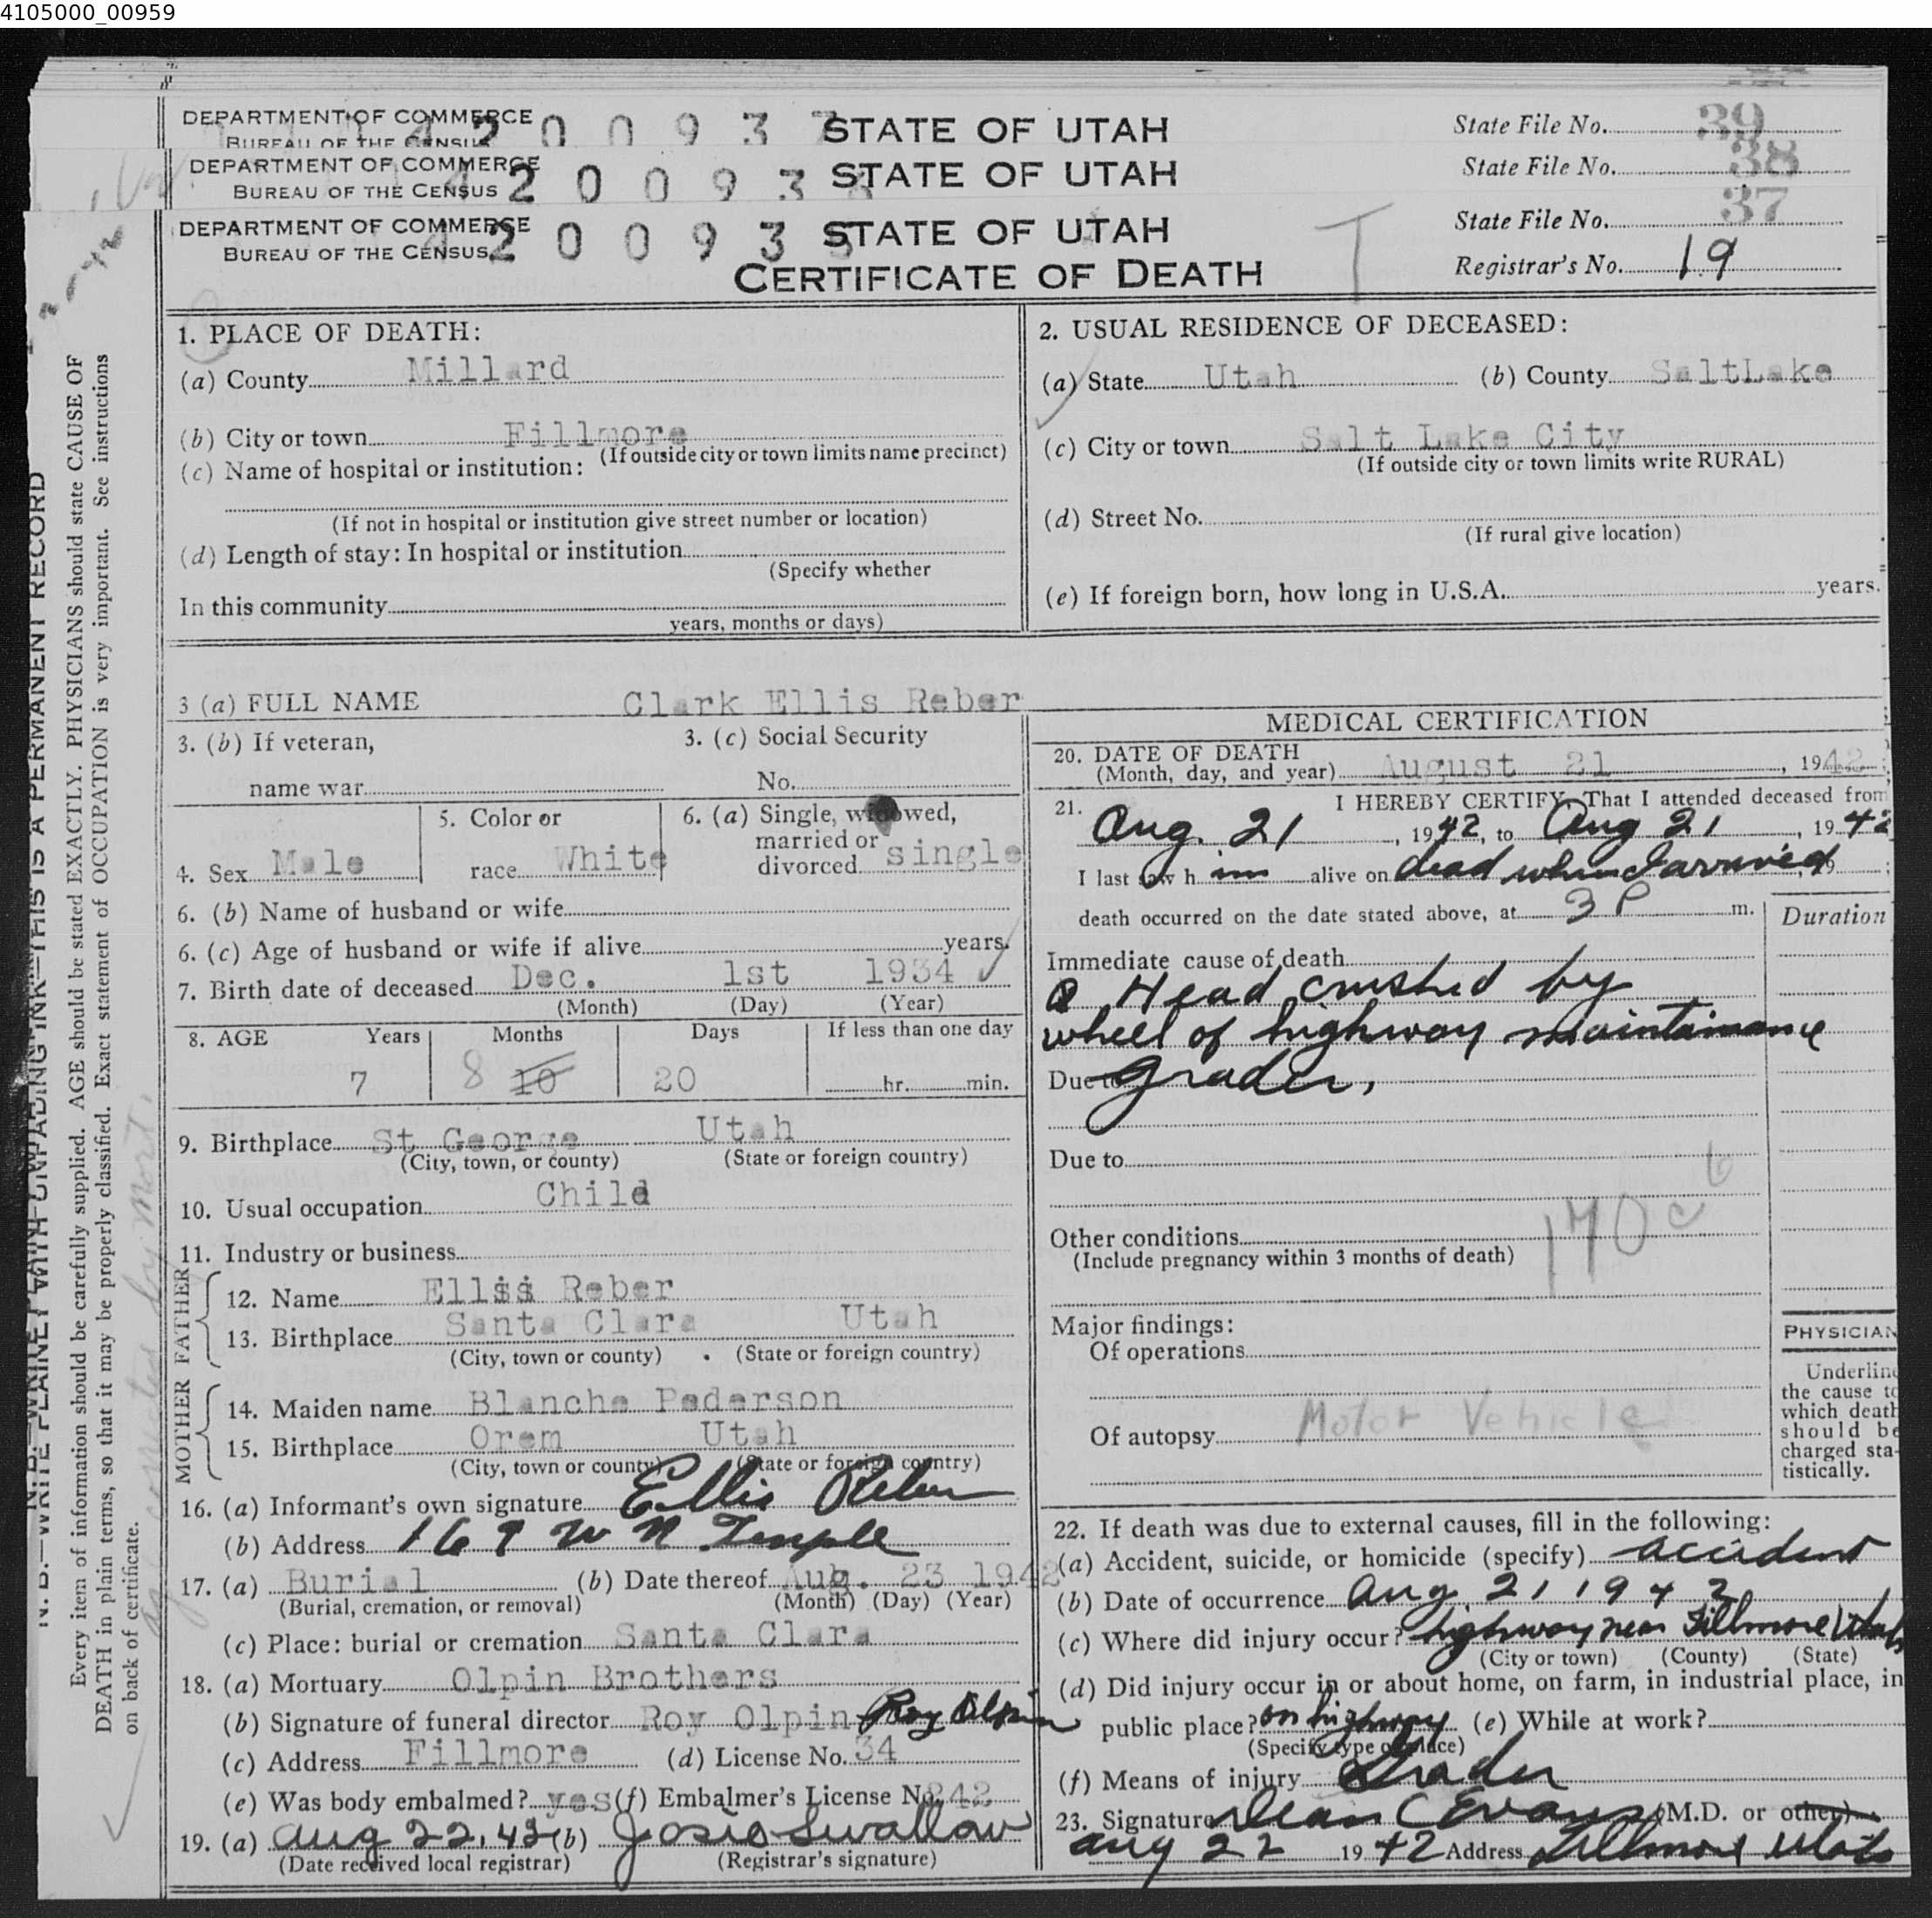 4105000_00959
DEPARTMENT OF COMMERCE
BUREAU OF THE CENSUS
4 2 0 0 9 3 7
STATE OF UTAH
State File No. 39
DEPARTMENT OF COMMERCE
BUREAU OF THE CENSUS
4 2 0 0 9 3
STATE OF UTAH
State File No. 38
DEPARTMENT OF COMMERCE
BUREAU OF THE CENSUS
4 2 0 0 9 3
STATE OF UTAH
CERTIFICATE OF DEATH
T
State File No. 37
Registrar's No. 19
1. PLACE OF DEATH:
(a) County Millard
(b) City or town Fillmore
(If outside city or town limits name precinct)
(c) Name of hospital or institution:
(If not in hospital or institution give street number or location)
(d) Length of stay: In hospital or institution
(Specify whether
In this community
years, months or days)
2. USUAL RESIDENCE OF DECEASED:
(a) State Utah (b) County SaltLake
(c) City or town Salt Lake City
(If outside city or town limits write RURAL)
(d) Street No.
(If rural give location)
(e) If foreign born, how long in U.S.A. years.
3 (a) FULL NAME Clark Ellis Reber
3. (b) If veteran,
name war
3. (c) Social Security
No.
4. Sex Male
5. Color or
race White
6. (a) Single, widowed,
married or
divorced single
6. (b) Name of husband or wife
6. (c) Age of husband or wife if alive years.
7. Birth date of deceased Dec. 1st 1934
(Month) (Day) (Year)
8. AGE Years Months Days If less than one day
7 8 10 20 hr. min.
9. Birthplace St George Utah
(City, town, or county) (State or foreign country)
10. Usual occupation Child
11. Industry or business
FATHER
12. Name Ellis Reber
13. Birthplace Santa Clara Utah
(City, town or county) (State or foreign country)
MOTHER
14. Maiden name Blanche Pederson
15. Birthplace Orem Utah
(City, town or county) (State or foreign country)
16. (a) Informant's own signature Ellis Reber
(b) Address 169 W N Temple
17. (a) Burial (b) Date thereof Aug. 23 1942
(Burial, cremation, or removal) (Month) (Day) (Year)
(c) Place: burial or cremation Santa Clara
18. (a) Mortuary Olpin Brothers
(b) Signature of funeral director Roy Olpin Roy Olpin
(c) Address Fillmore (d) License No. 34
(e) Was body embalmed? yes (f) Embalmer's License No. 242
19. (a) Aug 22, 42 (b) Josie Swallow
(Date received local registrar) (Registrar's signature)
MEDICAL CERTIFICATION
20. DATE OF DEATH
(Month, day, and year) August 21, 1942
21. I HEREBY CERTIFY, That I attended deceased from
Aug. 21, 1942, to Aug 21, 1942
I last saw him alive on dead when I arrived, 19 ;
death occurred on the date stated above, at 3 P m.
Duration
Immediate cause of death
Head crushed by
wheel of highway maintainance
Due to grader,
Due to
170c
6
Other conditions
(Include pregnancy within 3 months of death)
Major findings:
Of operations
Of autopsy Motor Vehicle
PHYSICIAN
Underline
the cause to
which death
should be
charged sta-
tistically.
22. If death was due to external causes, fill in the following:
(a) Accident, suicide, or homicide (specify) accident
(b) Date of occurrence Aug. 21 1942
(c) Where did injury occur? highway near Fillmore Utah
(City or town) (County) (State)
(d) Did injury occur in or about home, on farm, in industrial place, in
public place? on highway (e) While at work?
(Specify type of place)
(f) Means of injury Grader
23. Signature Dean C Evans (M.D. or other)
Aug 22 1942 Address Fillmore Utah
N. B.—WRITE PLAINLY WITH UNFADING INK—THIS IS A PERMANENT RECORD
Every item of information should be carefully supplied. AGE should be stated EXACTLY. PHYSICIANS should state CAUSE OF
DEATH in plain terms, so that it may be properly classified. Exact statement of OCCUPATION is very important. See instructions
on back of certificate.